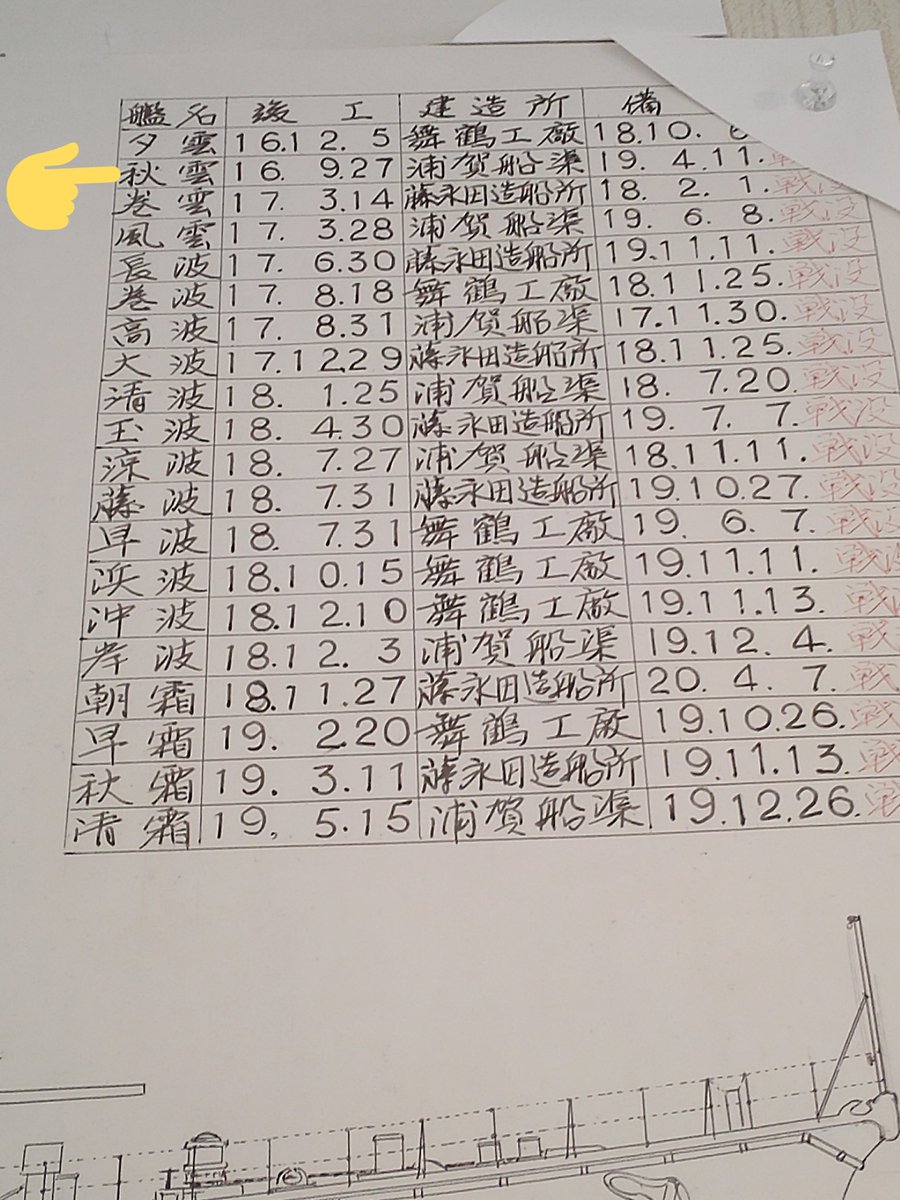 艦名 竣工 建造所 備
夕雲 16.12.5 舞鶴工廠 18.10.
秋雲 16.9.27 浦賀船渠 19.4.11.
巻雲 17.3.14 藤永田造船所 18.2.1.戦没
風雲 17.3.28 浦賀船渠 19.6.8.戦没
長波 17.6.30 藤永田造船所 19.11.11.戦没
巻波 17.8.18 舞鶴工廠 18.11.25.戦没
高波 17.8.31 浦賀船渠 17.11.30.戦没
大波 17.12.29 藤永田造船所 18.11.25.戦没
清波 18.1.25 浦賀船渠 18.7.20.戦没
玉波 18.4.30 藤永田造船所 19.7.7.戦没
涼波 18.7.27 浦賀船渠 18.11.11.戦没
藤波 18.7.31 藤永田造船所 19.10.27.戦没
早波 18.7.31 舞鶴工廠 19.6.7.戦没
浜波 18.10.15 舞鶴工廠 19.11.11.戦没
沖波 18.12.10 舞鶴工廠 19.11.13.戦
岸波 18.12.3 浦賀船渠 19.12.4.戦
朝霜 18.11.27 藤永田造船所 20.4.7.戦
早霜 19.2.20 舞鶴工廠 19.10.26.戦
秋霜 19.3.11 藤永田造船所 19.11.13.戦
清霜 19.5.15 浦賀船渠 19.12.26.戦